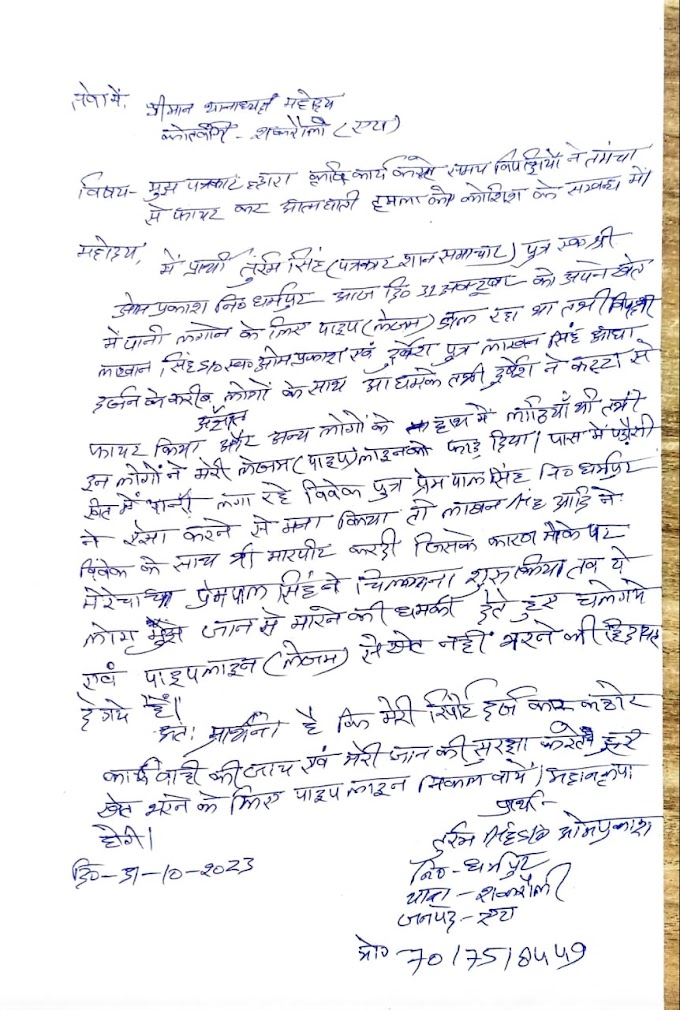 सेवा में,
श्रीमान थानाध्यक्ष महोदय
कोतवाली - शकरौली (एटा)
विषय- मुझ पत्रकार द्वारा कृषि कार्य करते समय विपक्षियों ने तमंचा
से फायर कर आत्मघाती हमला की कोशिश के सम्बन्ध में।
महोदय,
में प्रार्थी तुर्रम सिंह (पत्रकार शान समाचार) पुत्र स्व. श्री
ओम प्रकाश नि० धर्मपुर आज दि० 31 अक्टूबर को अपने खेत
में पानी लगाने के लिए पाइप (लेजम) डाल रहा था तभी विपक्षी
लाखन सिंह S/o स्व० ओमप्रकाश एवं दुर्वेश पुत्र लाखन सिंह आधा
दर्जन के करीब लोगों के साथ आ धमके तभी दुर्वेश ने कट्टा से
फायर किया और अन्य लोगों के हाथ में लाठियाँ थी तभी
इन लोगों ने मेरी लेजम (पाइप) लाइन को फाड़ दिया। पास में पड़ौसी
खेत में पानी लगा रहे विवेक पुत्र प्रेम पाल सिंह नि० धर्मपुर
ने ऐसा करने से मना किया तो लाखन सिंह आदि ने
विवेक के साथ भी मारपीट करदी जिसके कारण मौके पर
मेरे चाचा प्रेमपाल सिंह ने चिल्लाना शुरू किया तव ये
लोग मुझे जान से मारने की धमकी देते हुए चले गये
एवं पाइप लाइन (लेजम) से खेत नहीं भरने की हिदायत
दे गये हैं।
अतः प्रार्थना है कि मेरी रिपोर्ट दर्ज कर कठोर
कार्यवाही की जाय एवं मेरी जान की सुरक्षा करते हुए
खेत भरने के लिए पाइप लाइन निकलवायें। महान कृपा
होगी।
प्रार्थी-
तुर्रम सिंह S/o ओमप्रकाश
नि०-धर्मपुर
दि०-31-10-2023
थाना - शकरौली
जनपद - एटा
मो० 7017518449